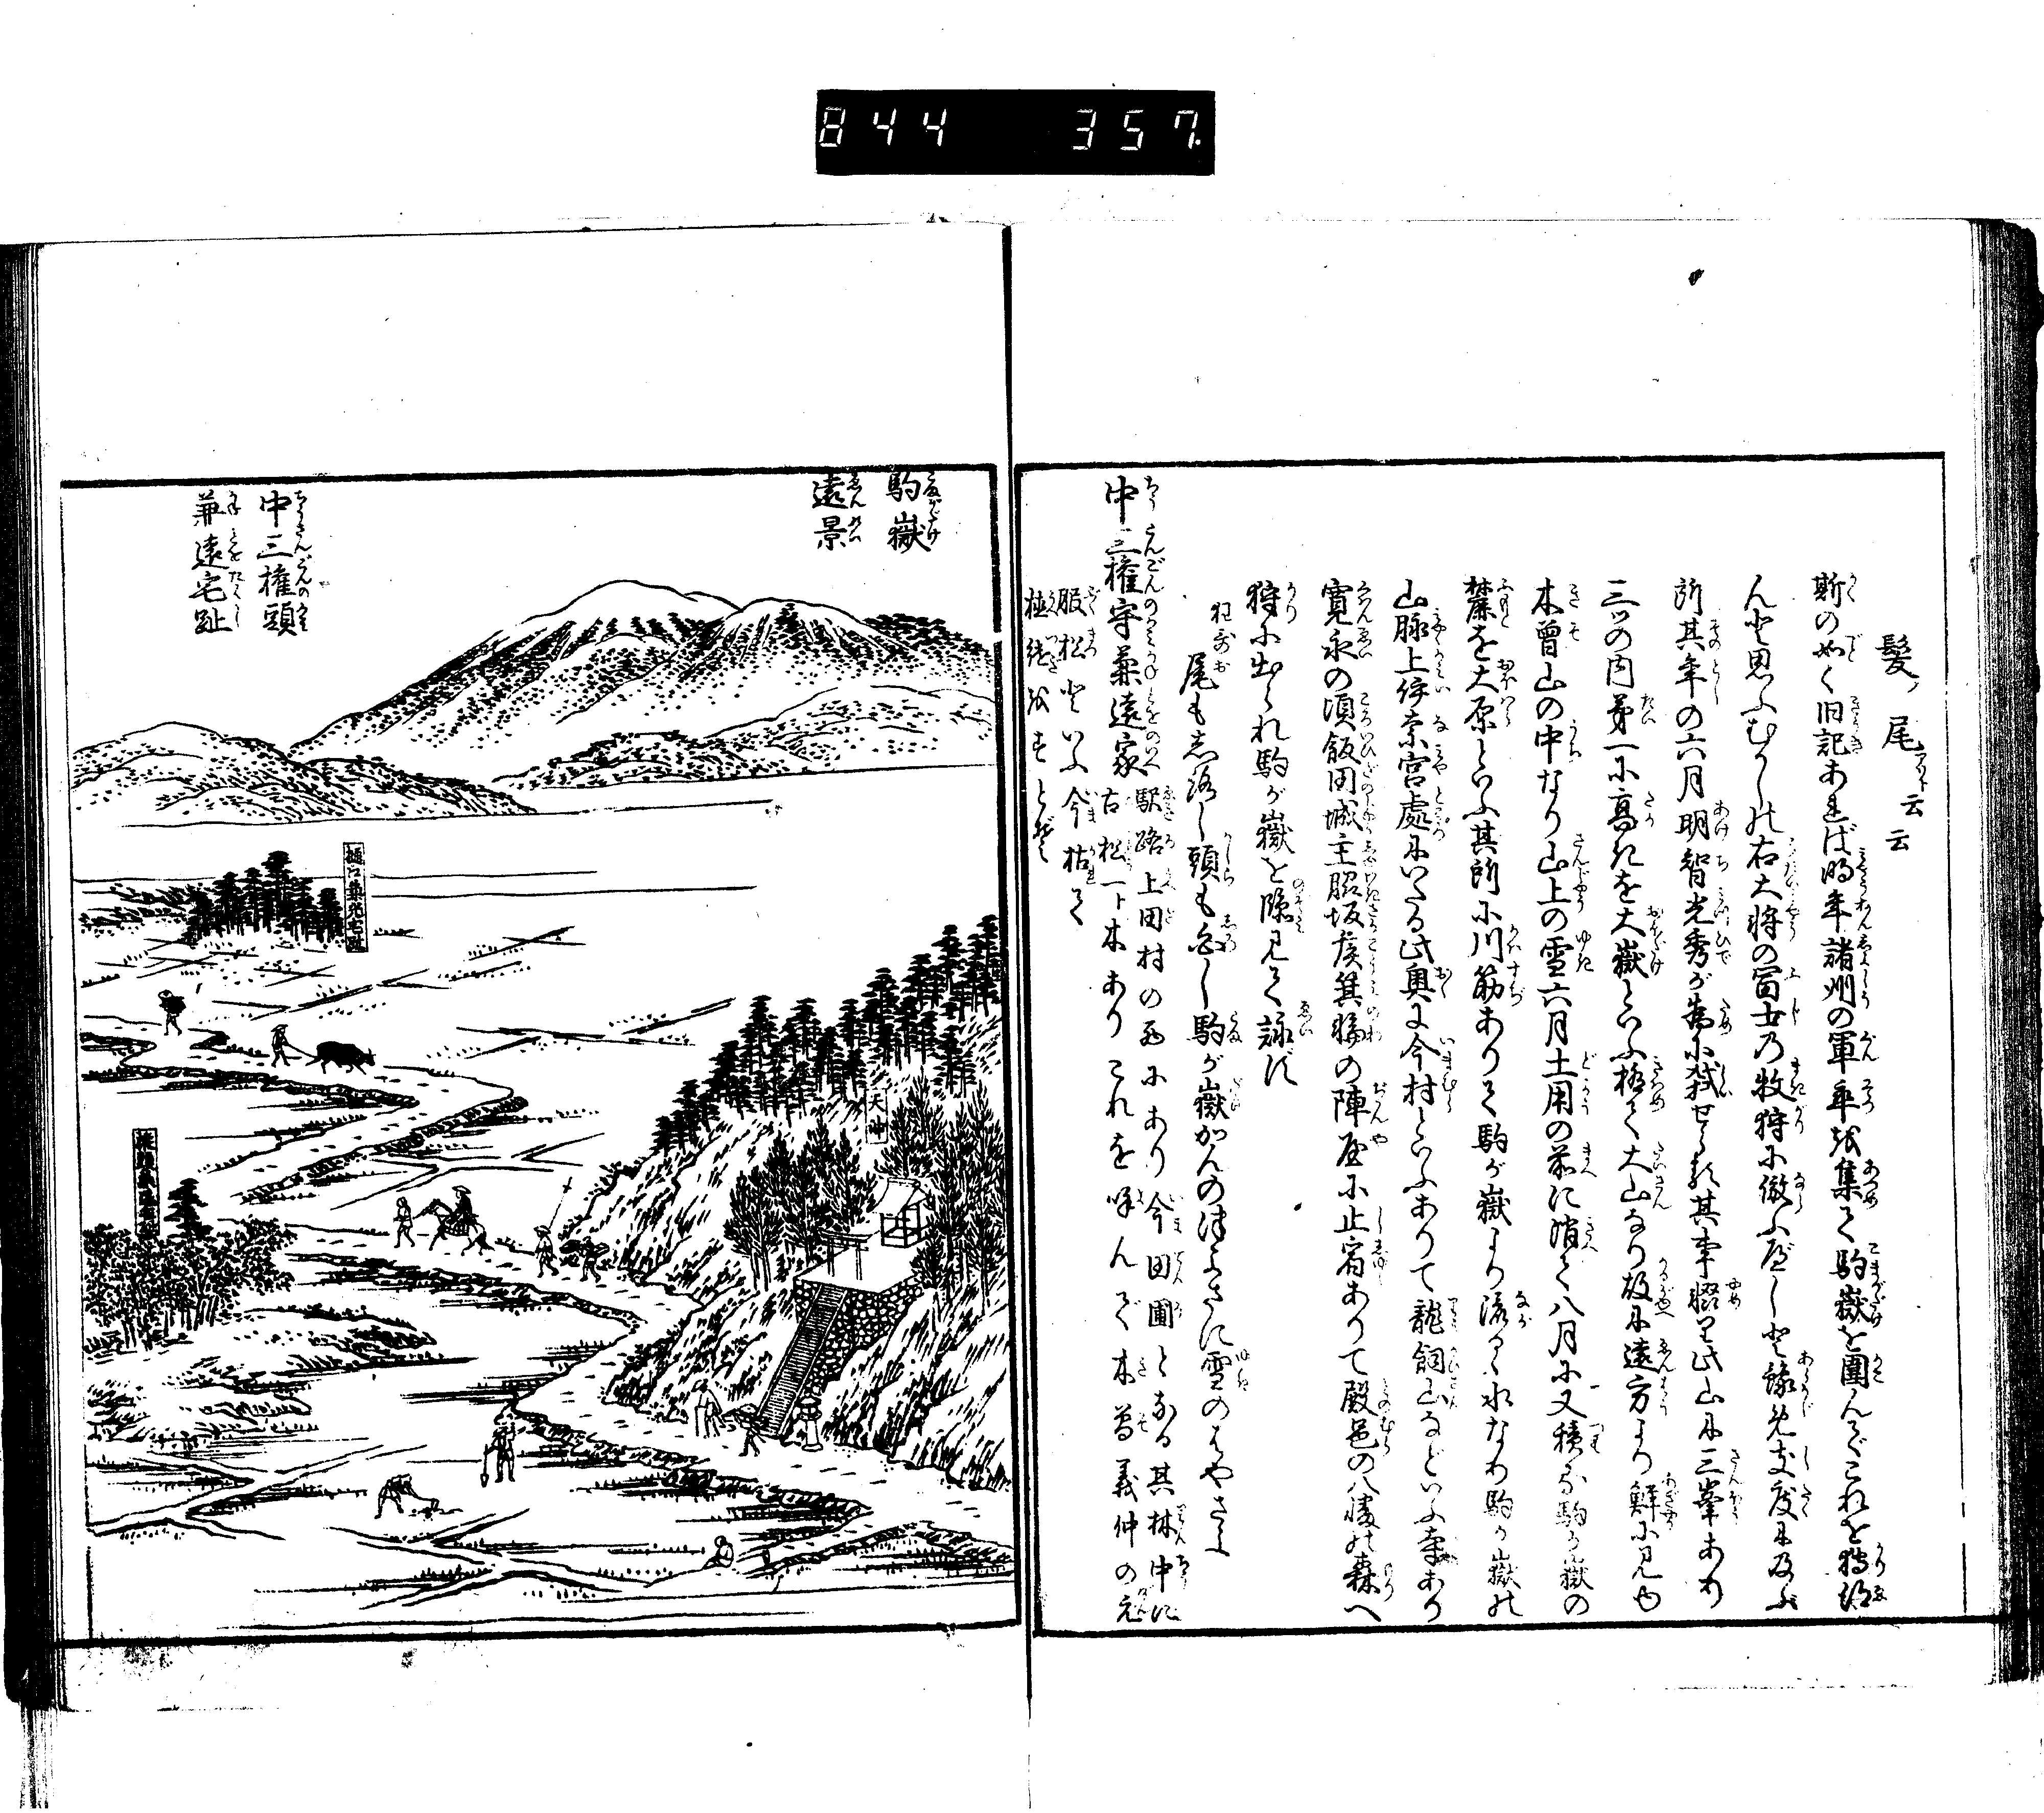 844 357
髪ノ尾アリト云云
斯の如く旧記あれば昨年諸州の軍卒を集て駒嶽を圍んでこれを狩給
んと思ふむかしの右大将の冨士の牧狩に倣ふべしと豫め支度に及ぶ
所其年の六月明智光秀が為に弑せられ其事輟りて此山に三峯あり
三ツの内第一に高きを大嶽といふ極て大山なり故に遠方より鮮に見ゆ
木曽山の中なり山上の雪六月土用の前に消て八月に又積る駒が嶽の
麓を大原といふ其所に川筋ありて駒が嶽より流るゝ水なり駒が嶽の
山脉上伊奈宮處にいたる此奥に今村といふありて龍飼山などいふ寺あり
寛永の頃飯田城主脇坂侯箕輪の陣屋に止宿ありて殿邑の八幡の森へ
狩に出られ駒が嶽を臨見て詠ず
狂哥 尾も志落し頭も白し駒が嶽かんの津よさに雪のはやさよ
中三権守兼遠家 駅路上田村の西にあり今田圃となる其林中に
古松一ト木ありこれを呼んで木曽義仲の元
服松といふ今枯て
植継をすとぞ
駒嶽
遠景
中三権頭
兼遠宅趾
樋口兼光宅趾
天神